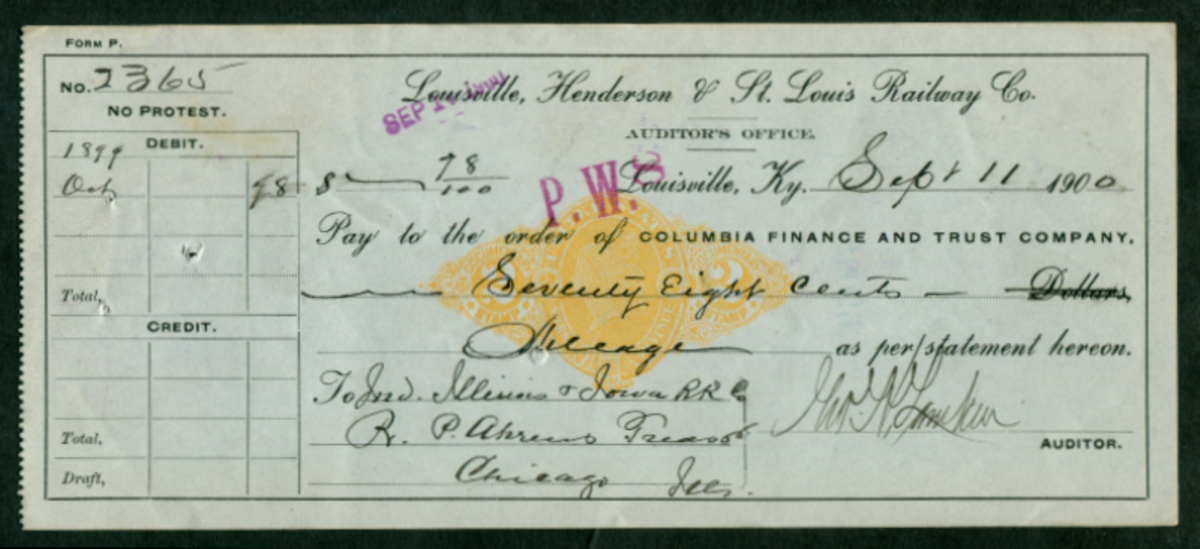 FORM P.
No. 2365
NO PROTEST.
Louisville, Henderson & St. Louis Railway Co.
SEP 1
AUDITOR'S OFFICE.
DEBIT.
1899
Oct 78
$ 78/100
P. W. S
Louisville, Ky. Sept 11 1900
Pay to the order of COLUMBIA FINANCE AND TRUST COMPANY,
Seventy Eight Cents — Dollars,
Total,
CREDIT.
Mileage as per statement hereon.
To Ind. Illinois & Iowa RR Co
R. P. Ahrens Treasr
AUDITOR.
Total,
Chicago Ills.
Draft,
2 STAMP 2 STAMP